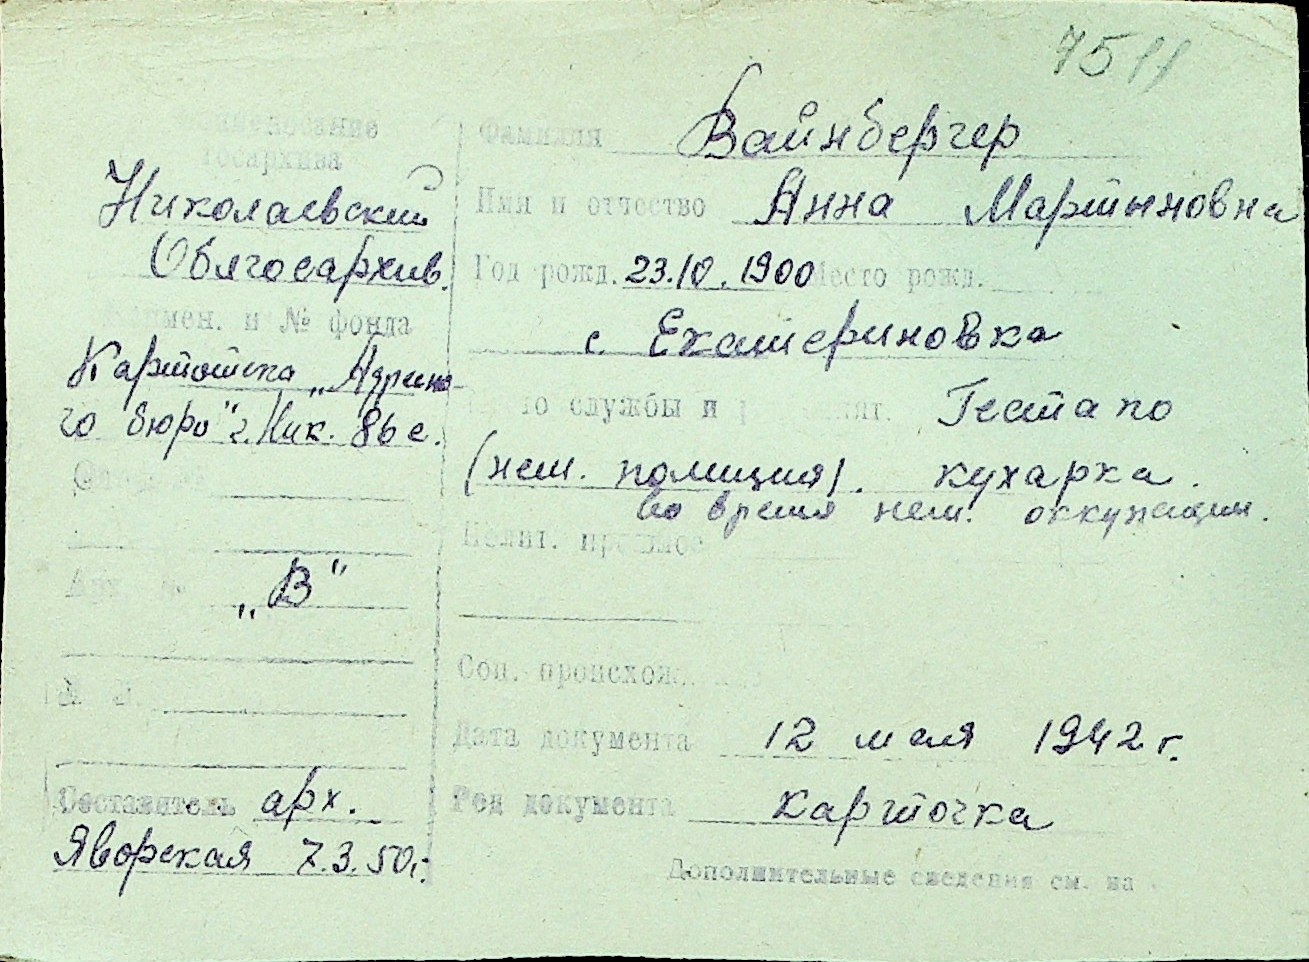 7511
наименование
госархива
Николаевский
Облгосархив.
Наимен. и № фонда
Картотека „Адресно
го бюро" г. Ник. 86 с.
Арх. №
„В"
Составитель арх.
Яворская 7.3.50 г.
Фамилия Вайнбергер
Имя и отчество Анна Мартыновна
Год рожд. 23.10.1900 Место рожд.
с. Екатериновка
службы и Гестапо
(нем. полиция). кухарка.
во время нем. оккупации.
Полит. прошлое
Соц. происхожд.
Дата документа 12 мая 1942 г.
Род документа карточка
Дополнительные сведения см. на